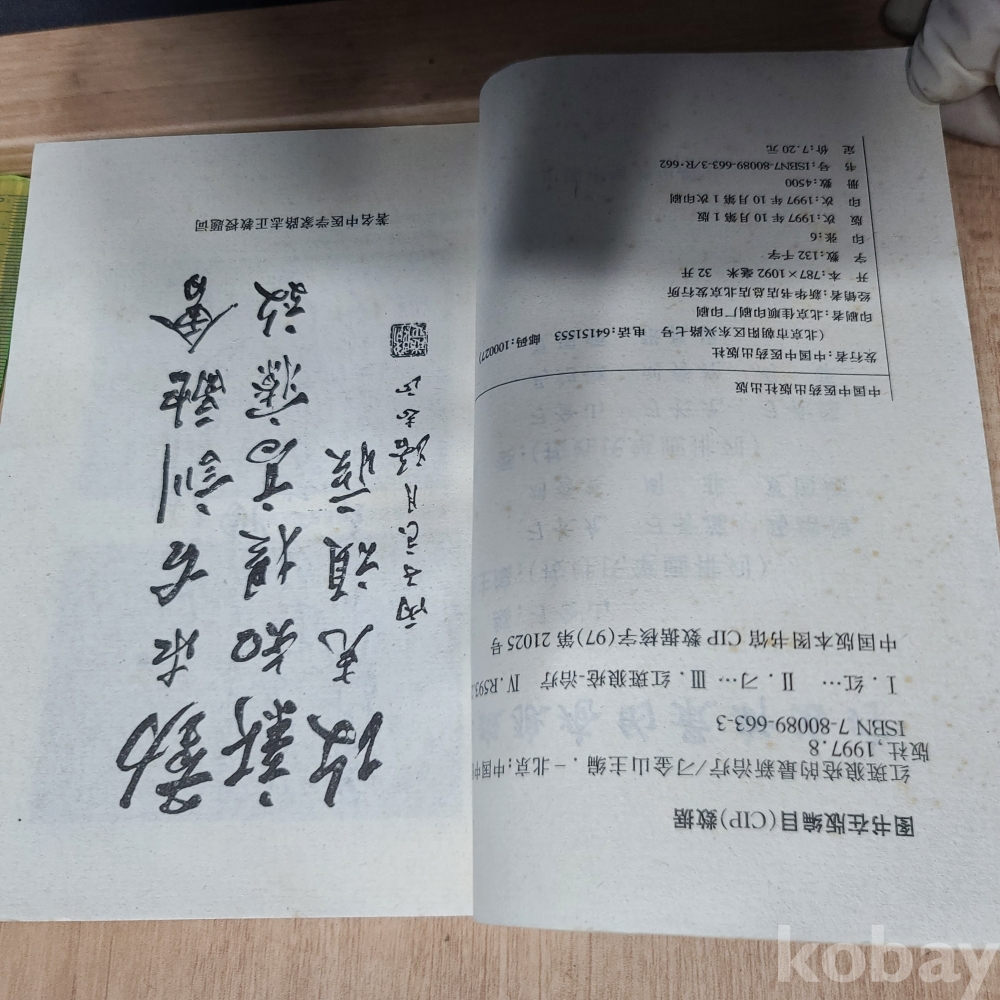 图书在版编目(CIP)数据
红斑狼疮的最新治疗/刁金山主编.－北京:中国中
版社,1997.8
ISBN 7-80089-663-3
Ⅰ.红… Ⅱ.刁… Ⅲ.红斑狼疮-治疗 Ⅳ.R593.
中国版本图书馆CIP数据核字(97)第21025号
中国中医药出版社出版
发行者:中国中医药出版社
(北京市朝阳区东兴路七号 电话:64151553 邮码:100027)
印刷者:北京佳顺印刷厂印刷
经销者:新华书店总店北京发行所
开 本:787×1092毫米 32开
字 数:132千字
印 张:6
版 次:1997年10月第1版
印 次:1997年10月第1次印刷
册 数:4500
书 号:ISBN7-80089-663-3/R·662
定 价:7.20元
勤求古訓融會
新知提高療效
攻克頑疾
丙子 月 路志正
著名中医学家路志正教授题词
kobay